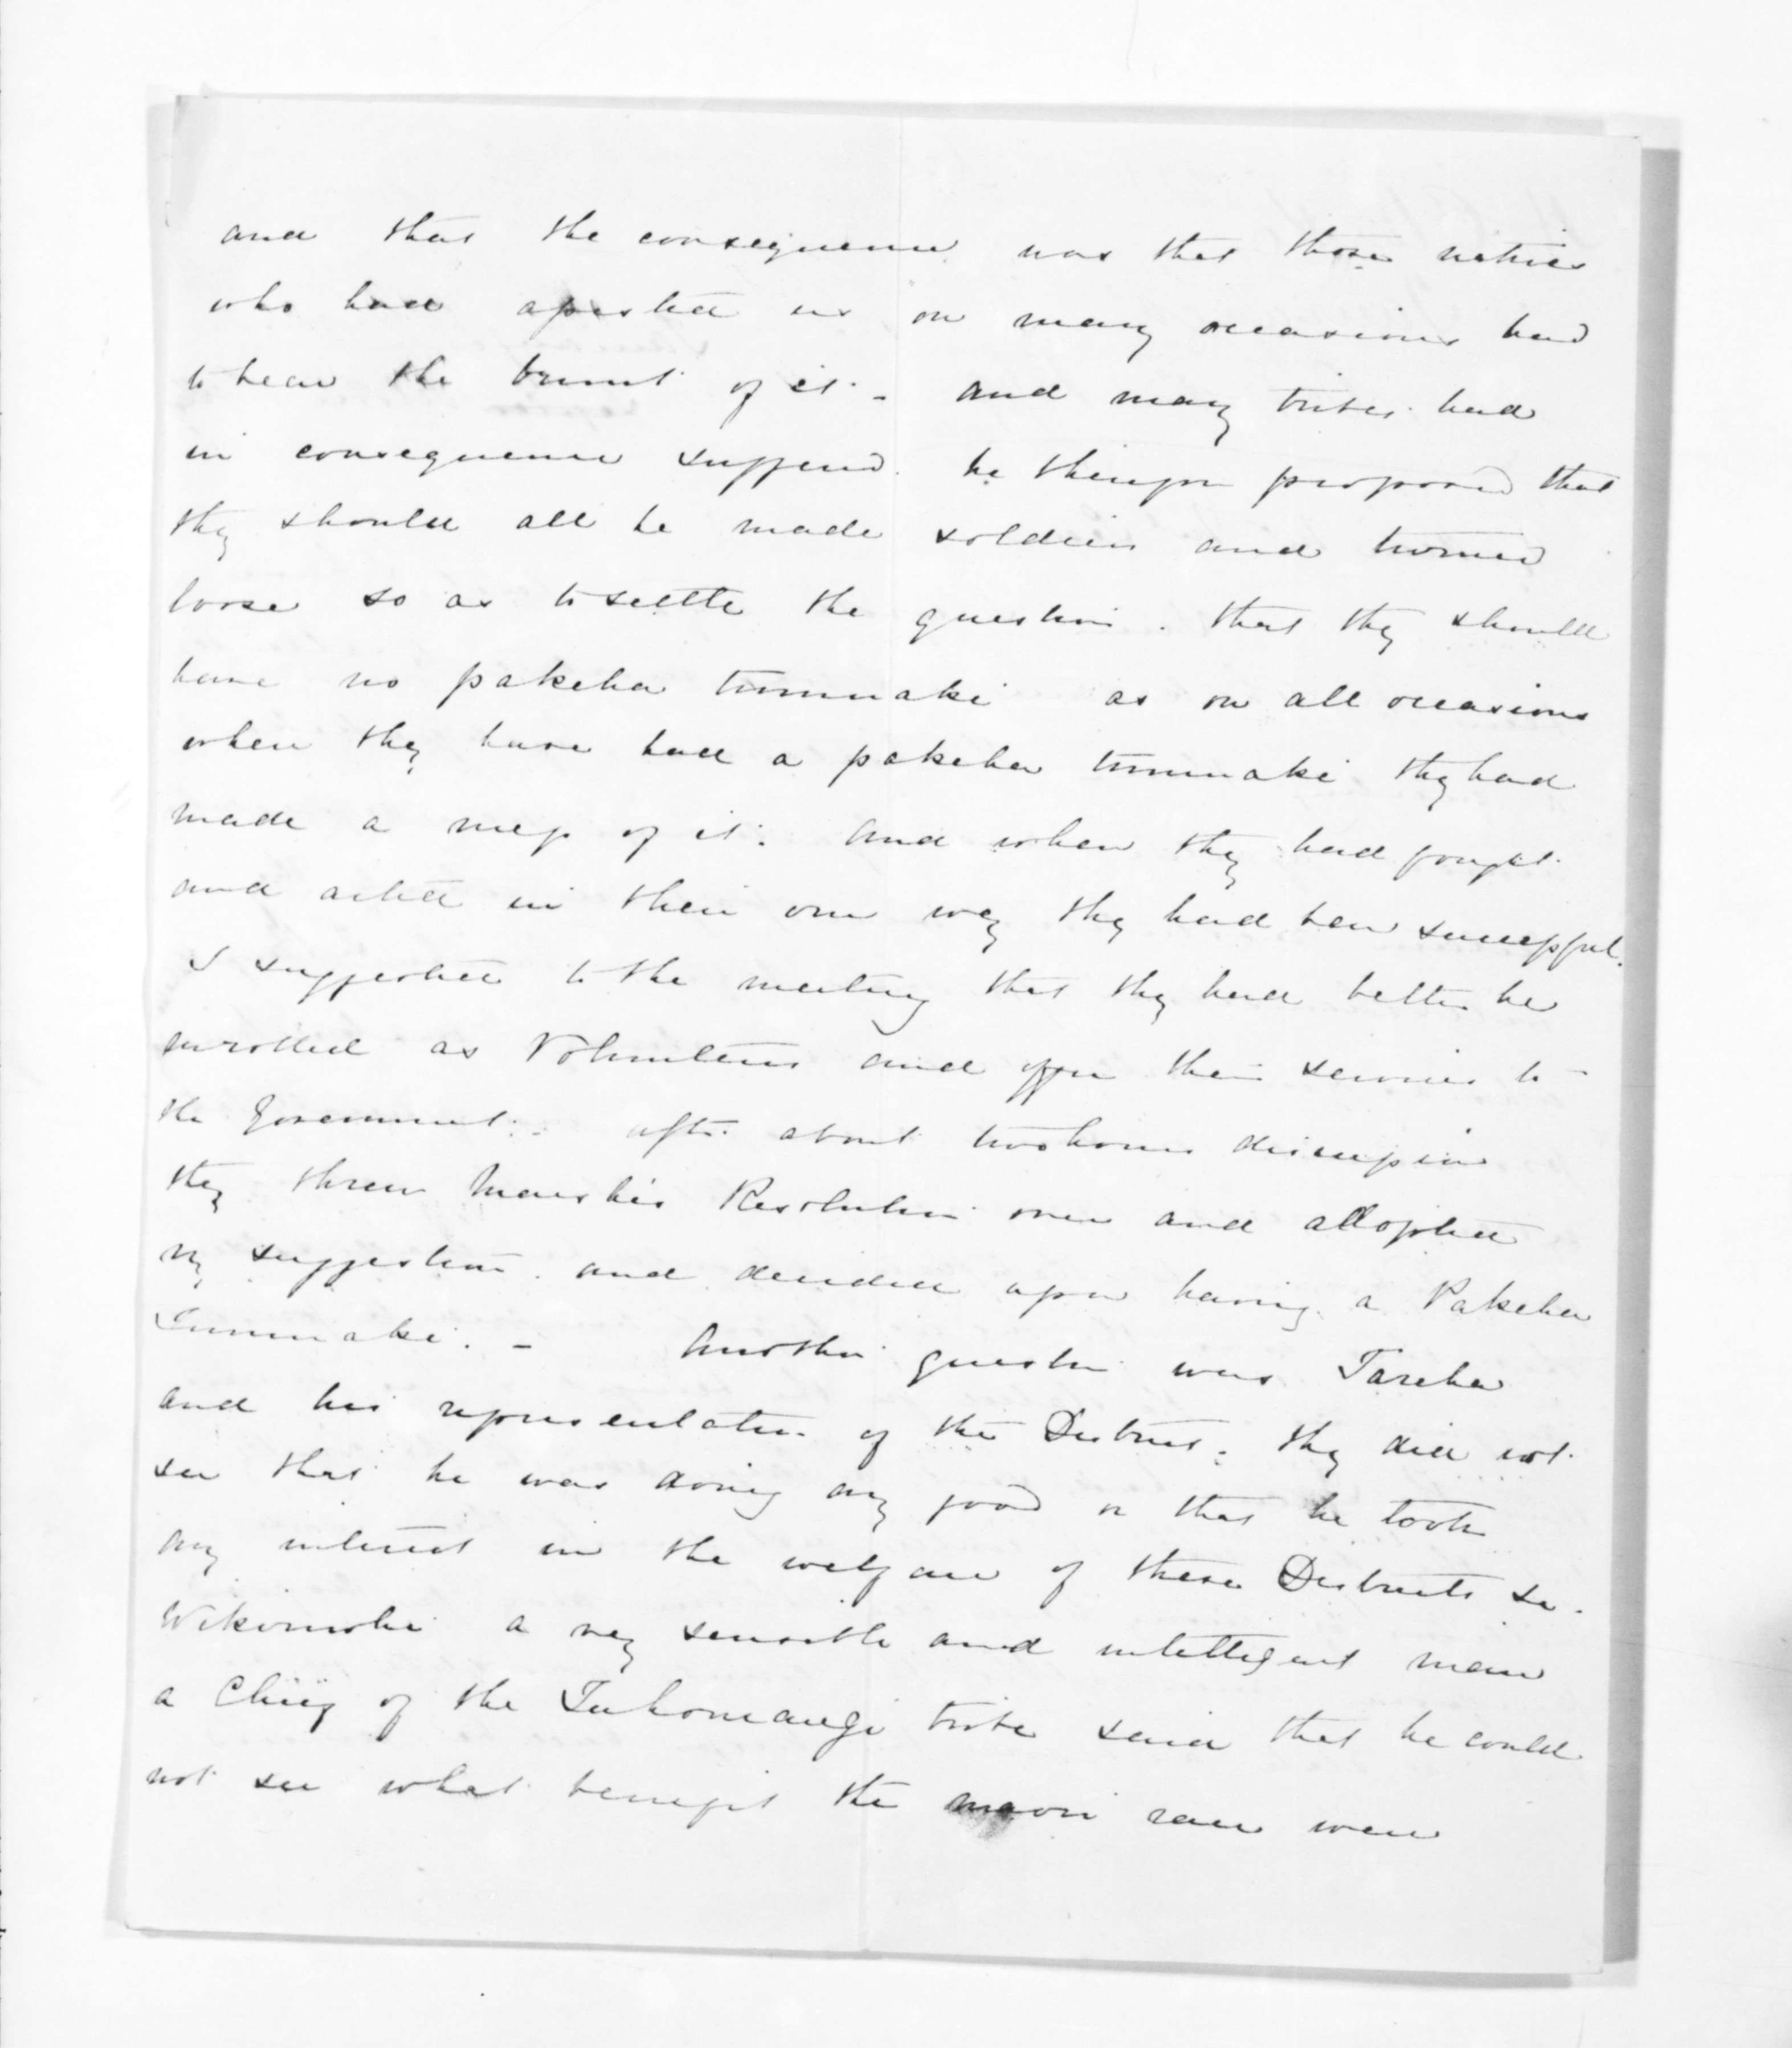 and that the consequence was that those natives
who had assisted us on many occasions had
to bear the brunt of it - and many tribes had
in consequence suffered. he therefore proposed that
they should all be made soldiers and turned
loose so as to settle the question. that they should
have no pakeha tumuaki as on all occasions
when they have had a pakeha tumuaki they had
made a mess of it. and when they had fought
and acted in their own way they had been successful.
I suggested to the meeting that they had better be
enrolled as Volunteers and offer their services to
the Government. - after about two hours discussion
they threw Resolution over and adopted
my suggestion. and decided upon having a Pakeha
Tumuaki. - Another question was Tareha
and his representation of the District. they did not
see that he was doing any good or that he took
any interest in the welfare of these Districts
a very sensible and intelligent man
a Chief of the tribe said that he could
not see what benefit the maori race were